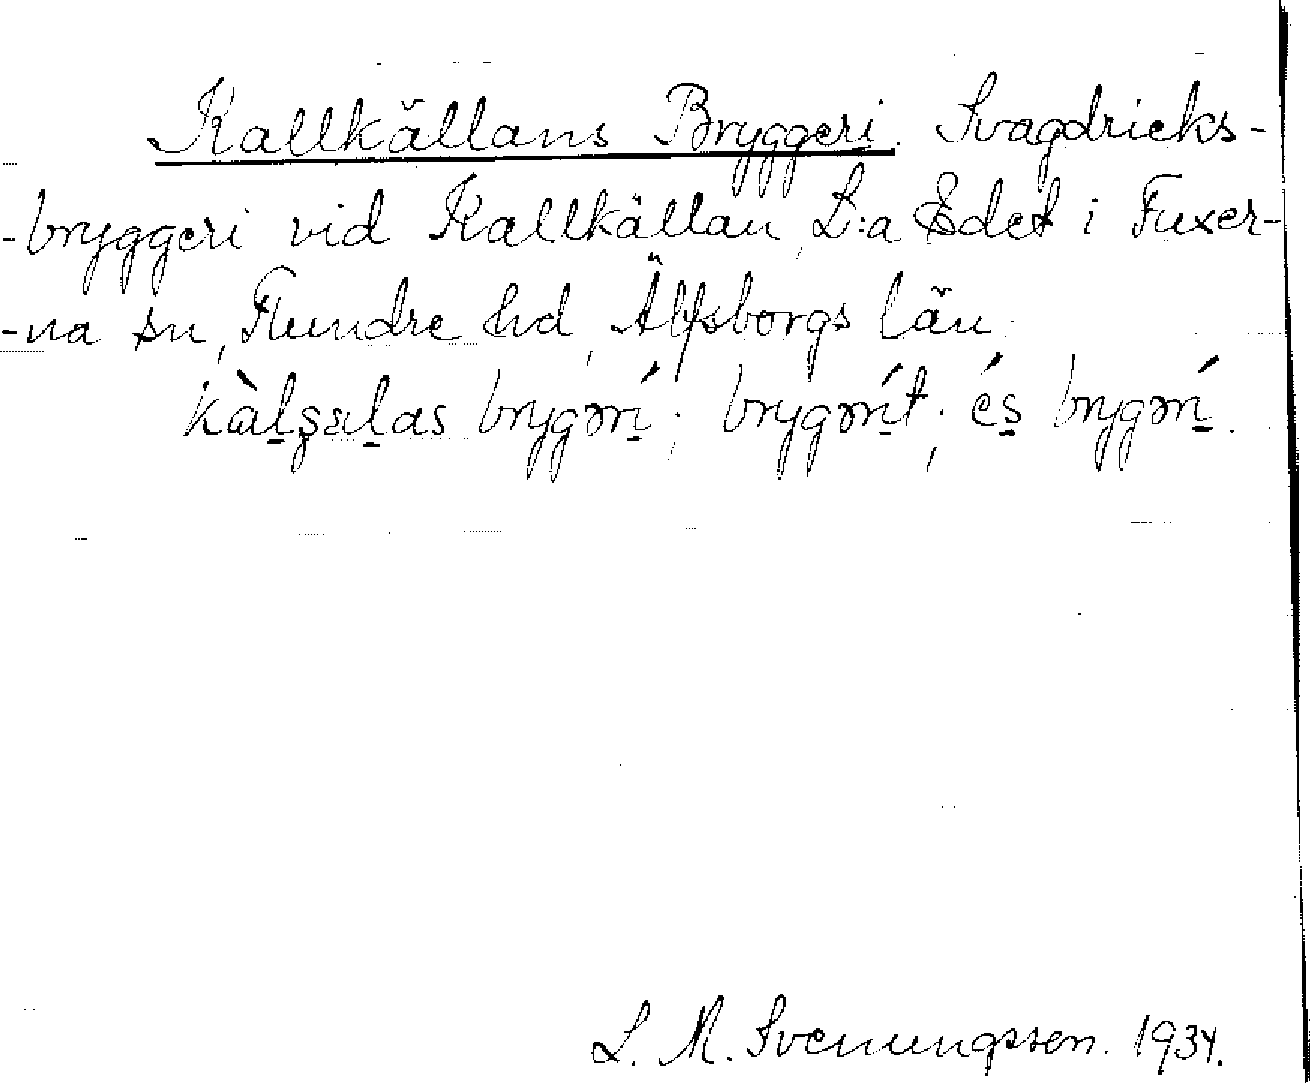 Kallkällans Bryggeri. Svagdricks-
-bryggeri vid Kallkällan, L:a Edet i Fuxer-
-na sn, Flundre hd, Älfsborgs län.
brygəŕi; brygəŕit; és brygəŕi.
L. M. Svenungsson. 1934.